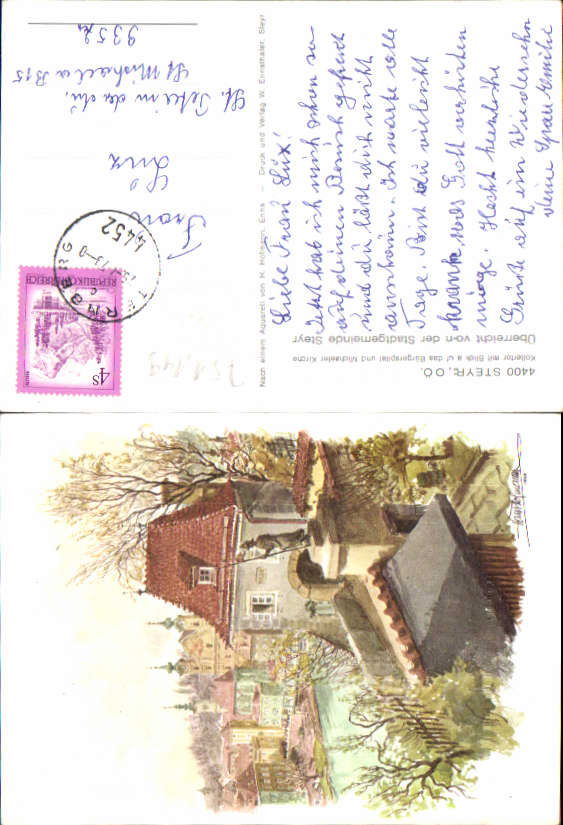 4400 STEYR, OÖ.
Kollertor mit Blick a. uf das Bürgerspital und Michaeler Kirche
Überreicht von der Stadtgemeinde Steyr
Liebe Frau Lux!
Jetzt hab ich mich schon so
auf deinen Besuch gefreut
und du läßt dich nicht
anschauen. Ich warte alle
Tage. Bist du vielleicht
krank, was Gott verhüten
möge. Herzliche
Grüße auf ein Wiedersehn
deine
Nach einem Aquarell von H. Hofmann, Enns — Druck und Verlag W. Ennsthaler, Steyr
4452
REPUBLIK ÖSTERREICH
4S
Frau
Lux
St. Peter in der Au.
St Michael a B 15
3352